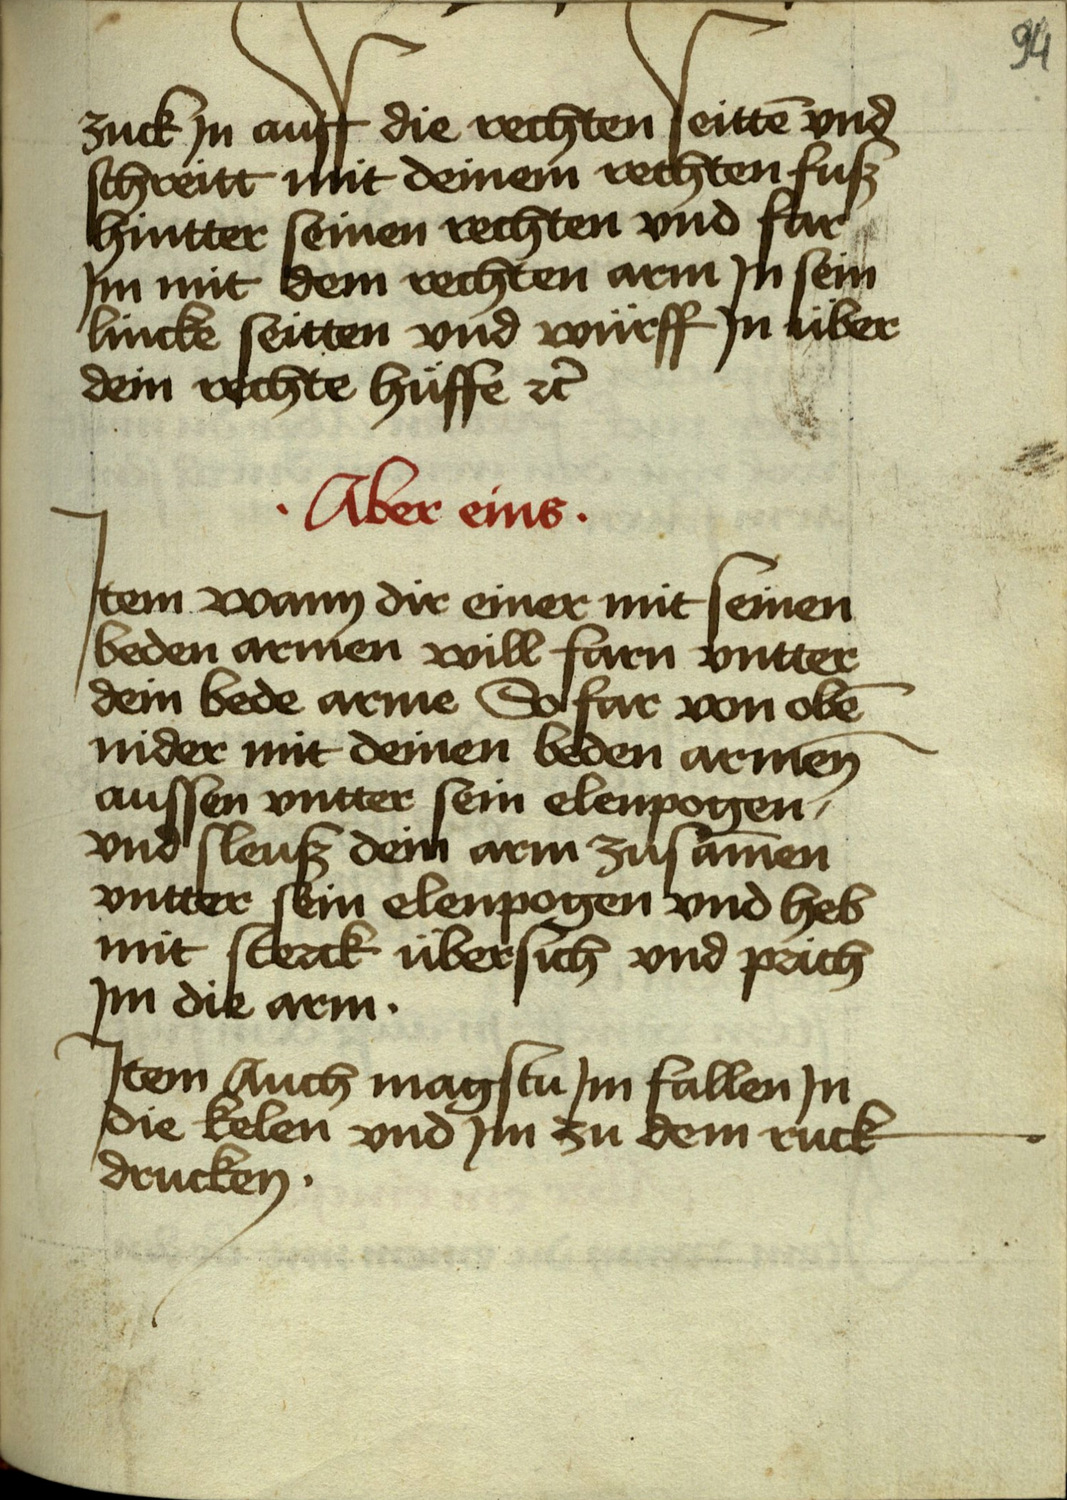 94
zuck jn auff die rechten seittē vnd
schreitt mit deinem rechten fuß
hintter seinen rechten vnd far
jm mit dem rechten arm jn sein
lincke seitten vnd würff jn über
dein rechte hüffe ⁊c̃
· Aber eins ·
Item wann dir einer mit seinen
beden armen will farn vntter
dein bede arme So far von obē
nider mit deinen beden armen̄
aussen vntter sein elenpogen /
vnd sleuß dein arm zusam̄en
vntter sein elenpogen vnd heb
mit sterck übersich vnd prich
jm die arm ·
Item Auch magstu jm fallen jn
die kelen vnd jm zu dem ruck
drucken ·